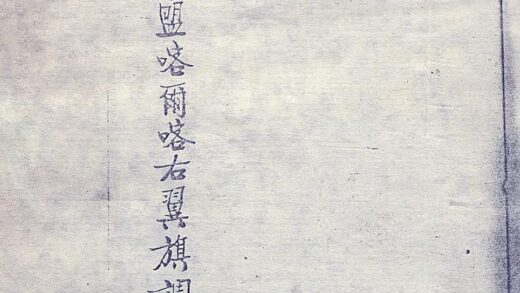 盟喀爾喀右翼旗調